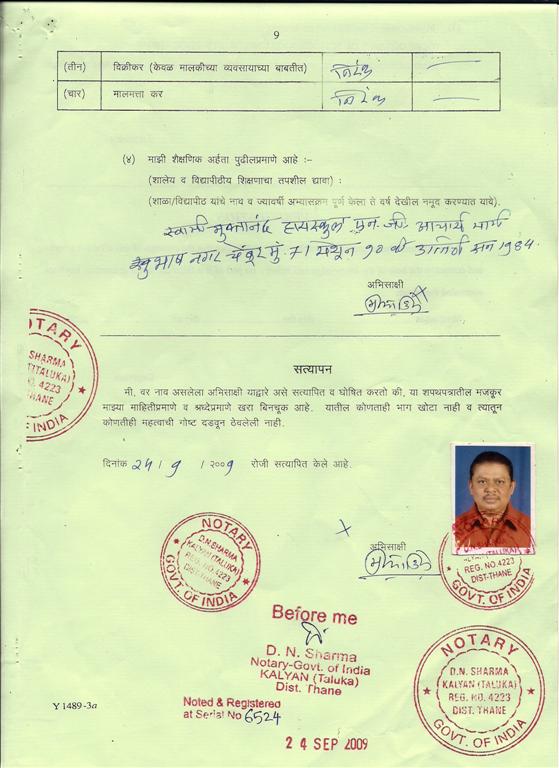 9
(तीन) विक्रीकर (केवळ मालकीच्या व्यवसायाच्या बाबतीत) निरंक —
(चार) मालमत्ता कर निरंक —
(४) माझी शैक्षणिक अर्हता पुढीलप्रमाणे आहे :–
(शालेय व विद्यापीठीय शिक्षणाचा तपशील द्यावा) :
(शाळा/विद्यापीठ यांचे नाव व ज्यावर्षी अभ्यासक्रम पूर्ण केला ते वर्ष देखील नमूद करण्यात यावे).
स्वामी मुक्तानंद हायस्कुल एन. जी. आचार्य मार्ग
सुभाष नगर चेंबूर मुं. 71 मधून १० वी उत्तिर्ण सन 1984.
अभिसाक्षी
सत्यापन
मी, वर नाव असलेला अभिसाक्षी याद्वारे असे सत्यापित व घोषित करतो की, या शपथपत्रातील मजकूर
माझ्या माहितीप्रमाणे व श्रध्देप्रमाणे खरा बिनचूक आहे. यातील कोणताही भाग खोटा नाही व त्यातून
कोणतीही महत्वाची गोष्ट दडवून ठेवलेली नाही.
दिनांक 24 / 9 / २००9 रोजी सत्यापित केले आहे.
अभिसाक्षी
NOTARY
SHARMA
(TALUKA)
NO. 4223
THANE
OF INDIA
NOTARY
D.N. SHARMA
KALYAN (TALUKA)
REG. NO. 4223
DIST-THANE
GOVT. OF INDIA
(TALUKA)
REG. NO. 4223
DIST-THANE
GOVT. OF INDIA
Before me
D. N. Sharma
Notary-Govt. of India
KALYAN (Taluka)
Dist. Thane
Noted & Registered
at Serial No 6524
24 SEP 2009
NOTARY
D.N. SHARMA
KALYAN (TALUKA)
REG. NO. 4223
DIST. THANE
GOVT. OF INDIA
Y 1489-3a